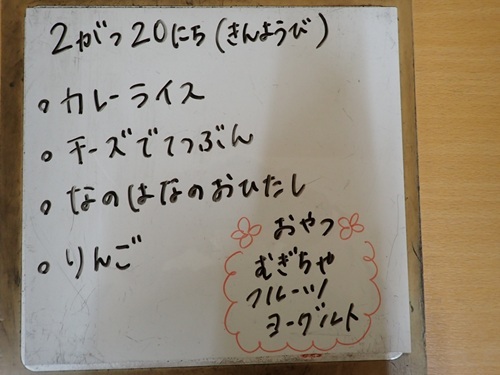 2がつ20にち(きんようび)
。カレーライス
。チーズでてつぶん
。なのはなのおひたし
。りんご
おやつ
むぎちゃ
フルーツ
ヨーグルト